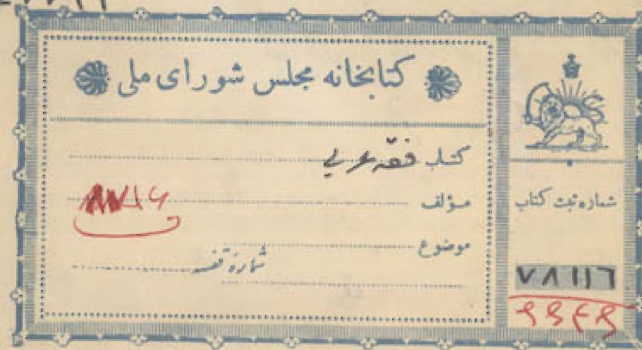 کتابخانه مجلس شورای ملی
کتاب فقه عربی
مؤلف
موضوع
شماره قفسه
شماره ثبت کتاب
۷۸۱۱۶